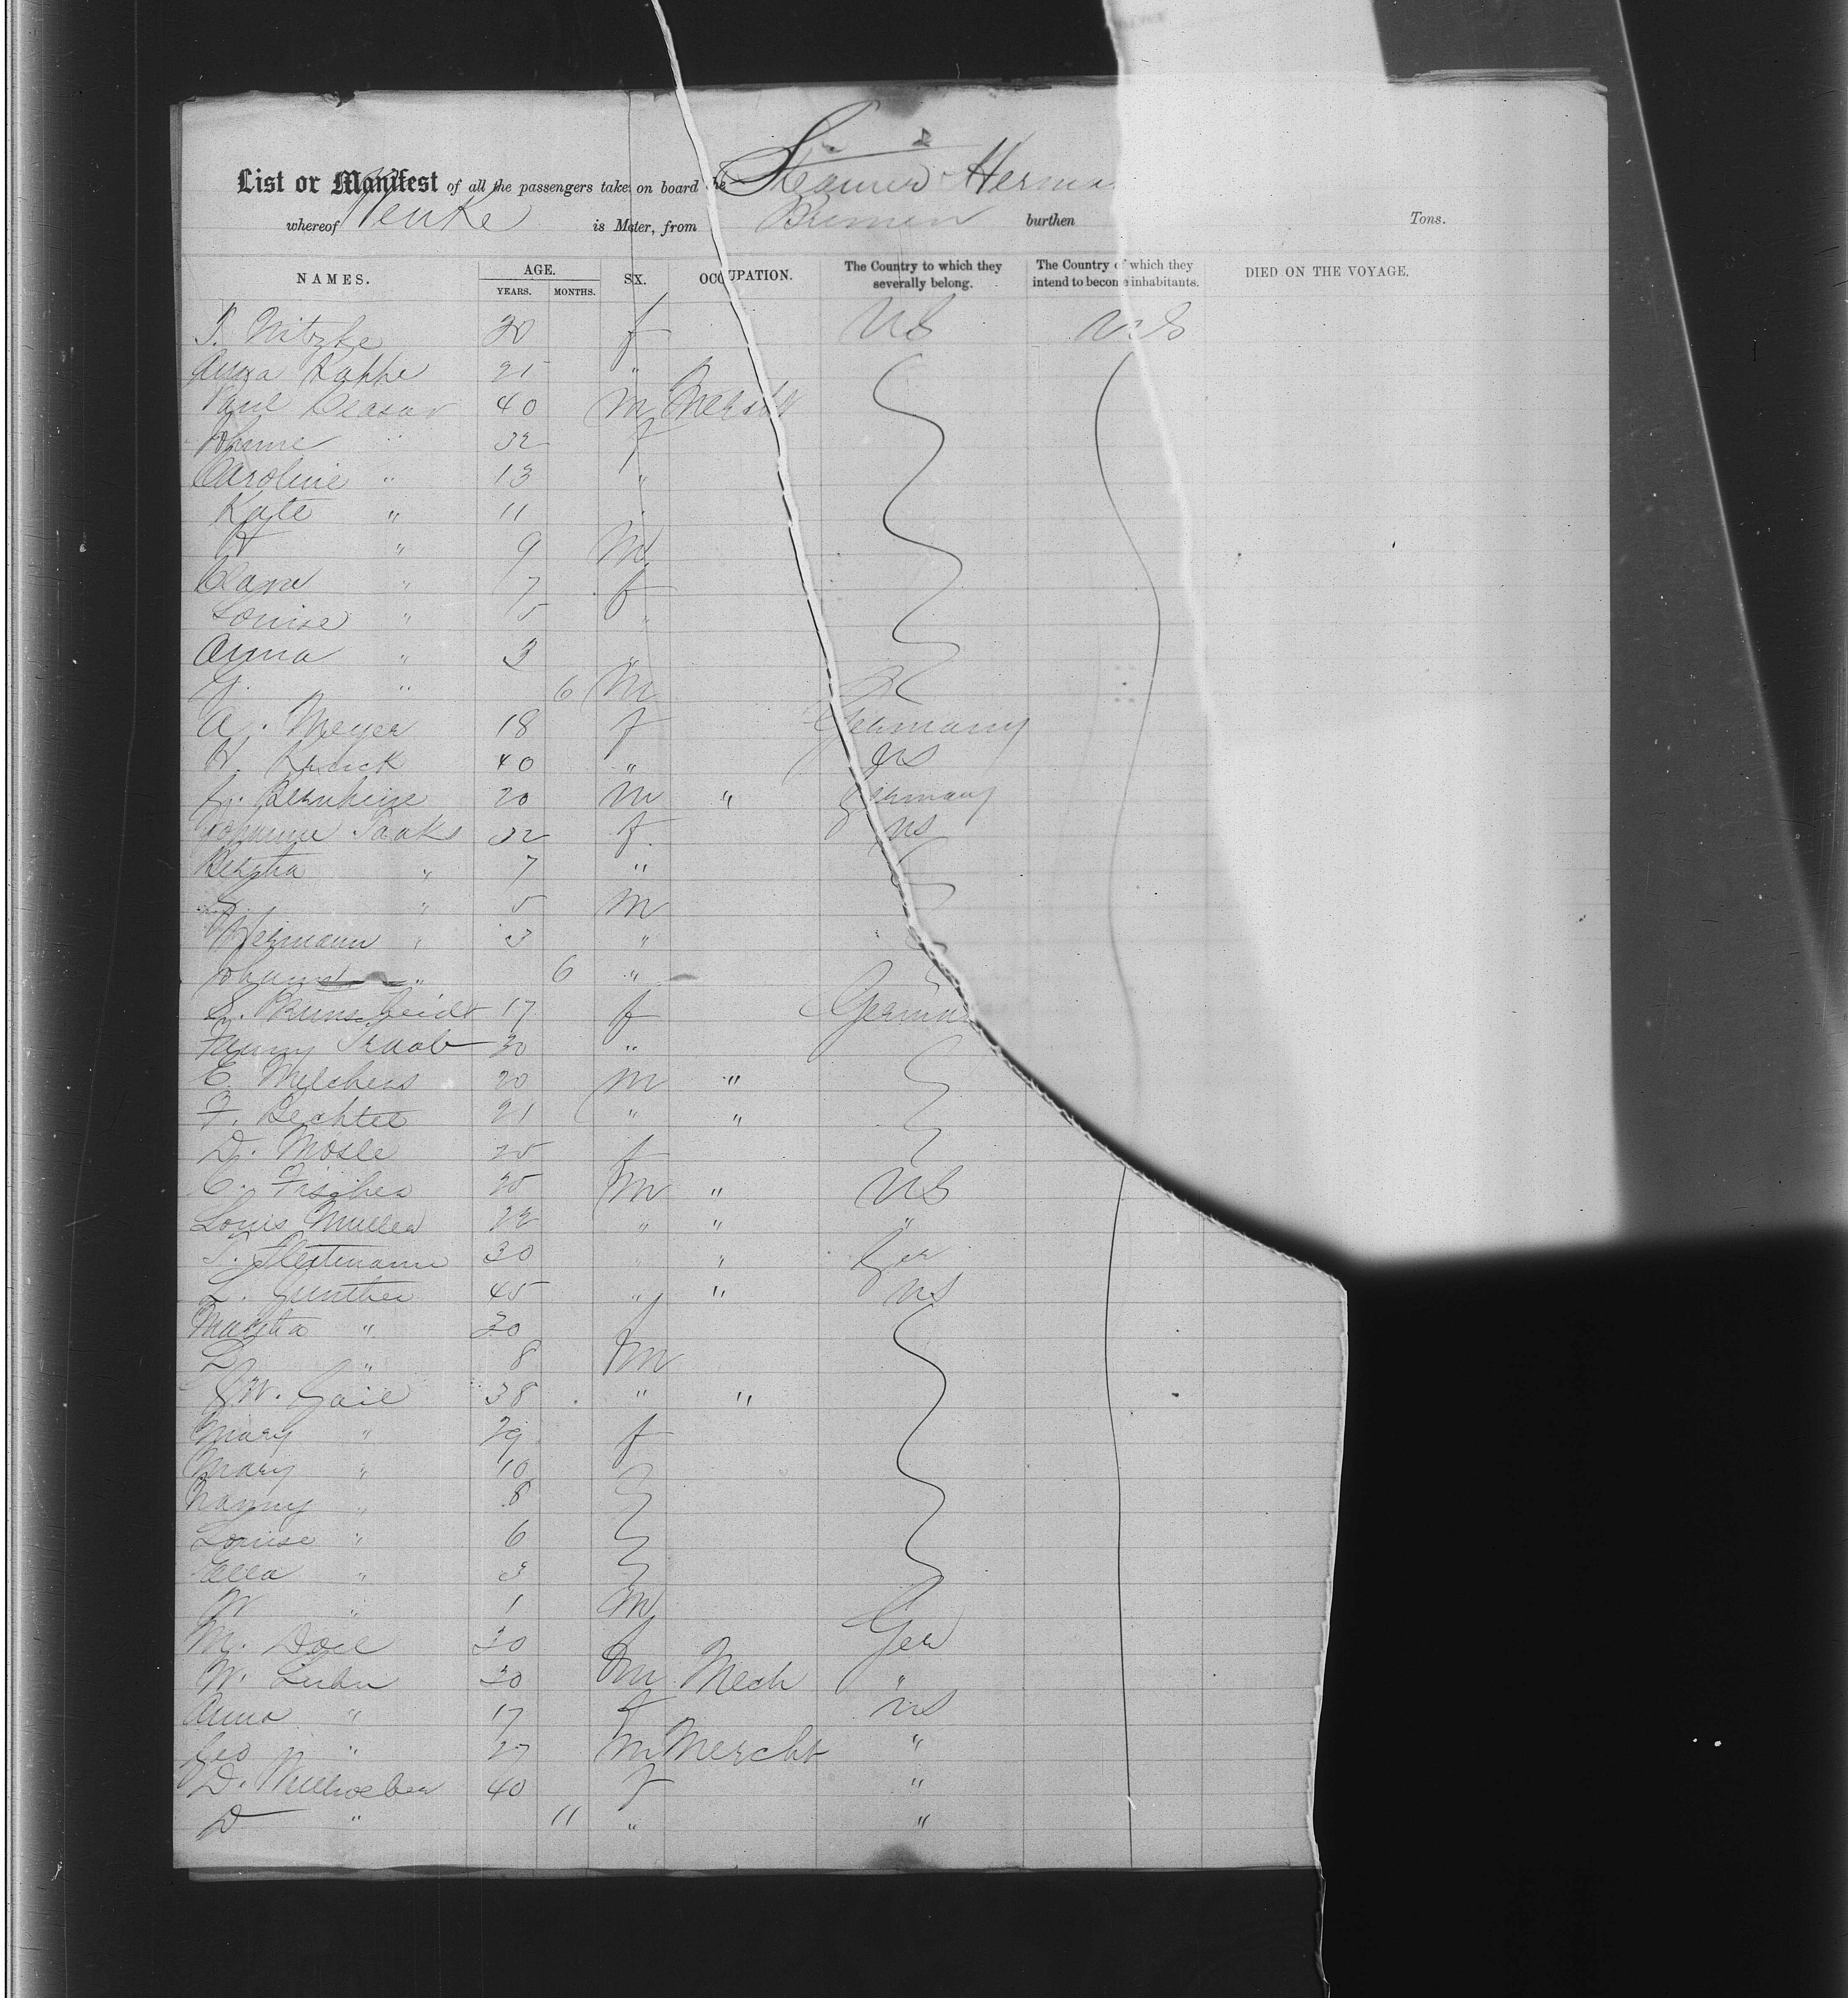 List or Manifest of all the passengers take on board the Steamer Herma
whereof Wenke is Mater, from Bremen burthen Tons.
NAMES. AGE. YEARS. MONTHS. SX. OCCUPATION. The Country to which they severally belong. The Country of which they intend to become inhabitants. DIED ON THE VOYAGE.
Nitzke 30 f US US
Anna Kappe 21 "
Paul 40 m
" 32 f
Caroline " 13 "
Kate " 11
" 9 m
Clara " 7 f
Louise " 5 "
Anna " 3 "
" 6 m
A. Meyer 18 f Germany
40 " US
Bernheim 20 m " Germany
32 f US
Bertha " 7 "
" 5 m
Hermann " 3 "
6 "
17 f German
Fanny Traub 30 "
E. Melchers 20 m "
F. Bechtel 21 " "
D. Mosle 25 f
C. Fischer 25 m " US
Louis Muller 22 " " "
30 " " Ger
L. Gunther 45 " " US
Martha " 30 f
L " 8 m
W. Gail 38 " "
Mary " 29 f
Mary " 10
Nanny " 8
Louise " 6
Ella " 3
W " 1 m
M. 30 f Ger
W. 30 m Mech "
Anna " 17 f US
Geo " 27 m Mercht "
D. 40 f "
D " 11 " "